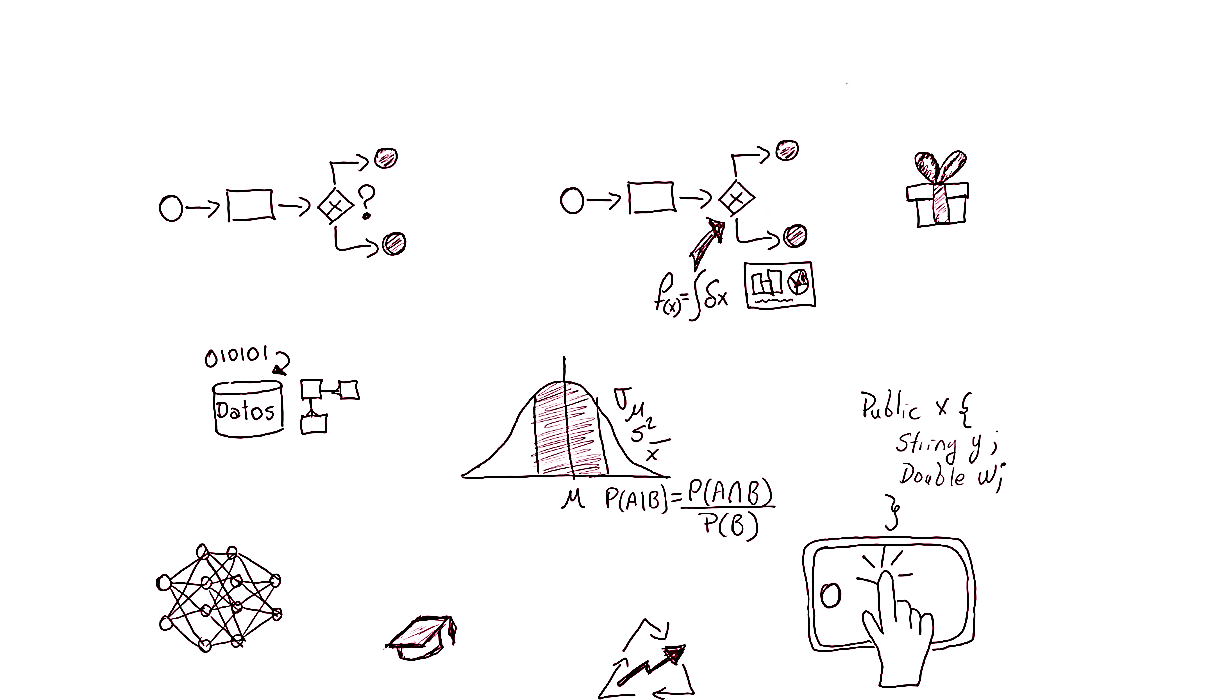 ?
f(x)=∫δx
010101
Datos
μ
P(A|B)=P(A∩B)
P(B)
Public x {
String y ;
Double w;
}